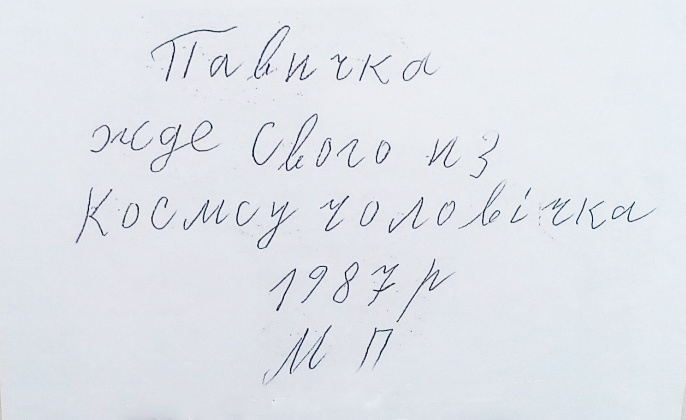 Павичка
жде свого из
космсу чоловічка
1987 р
М П